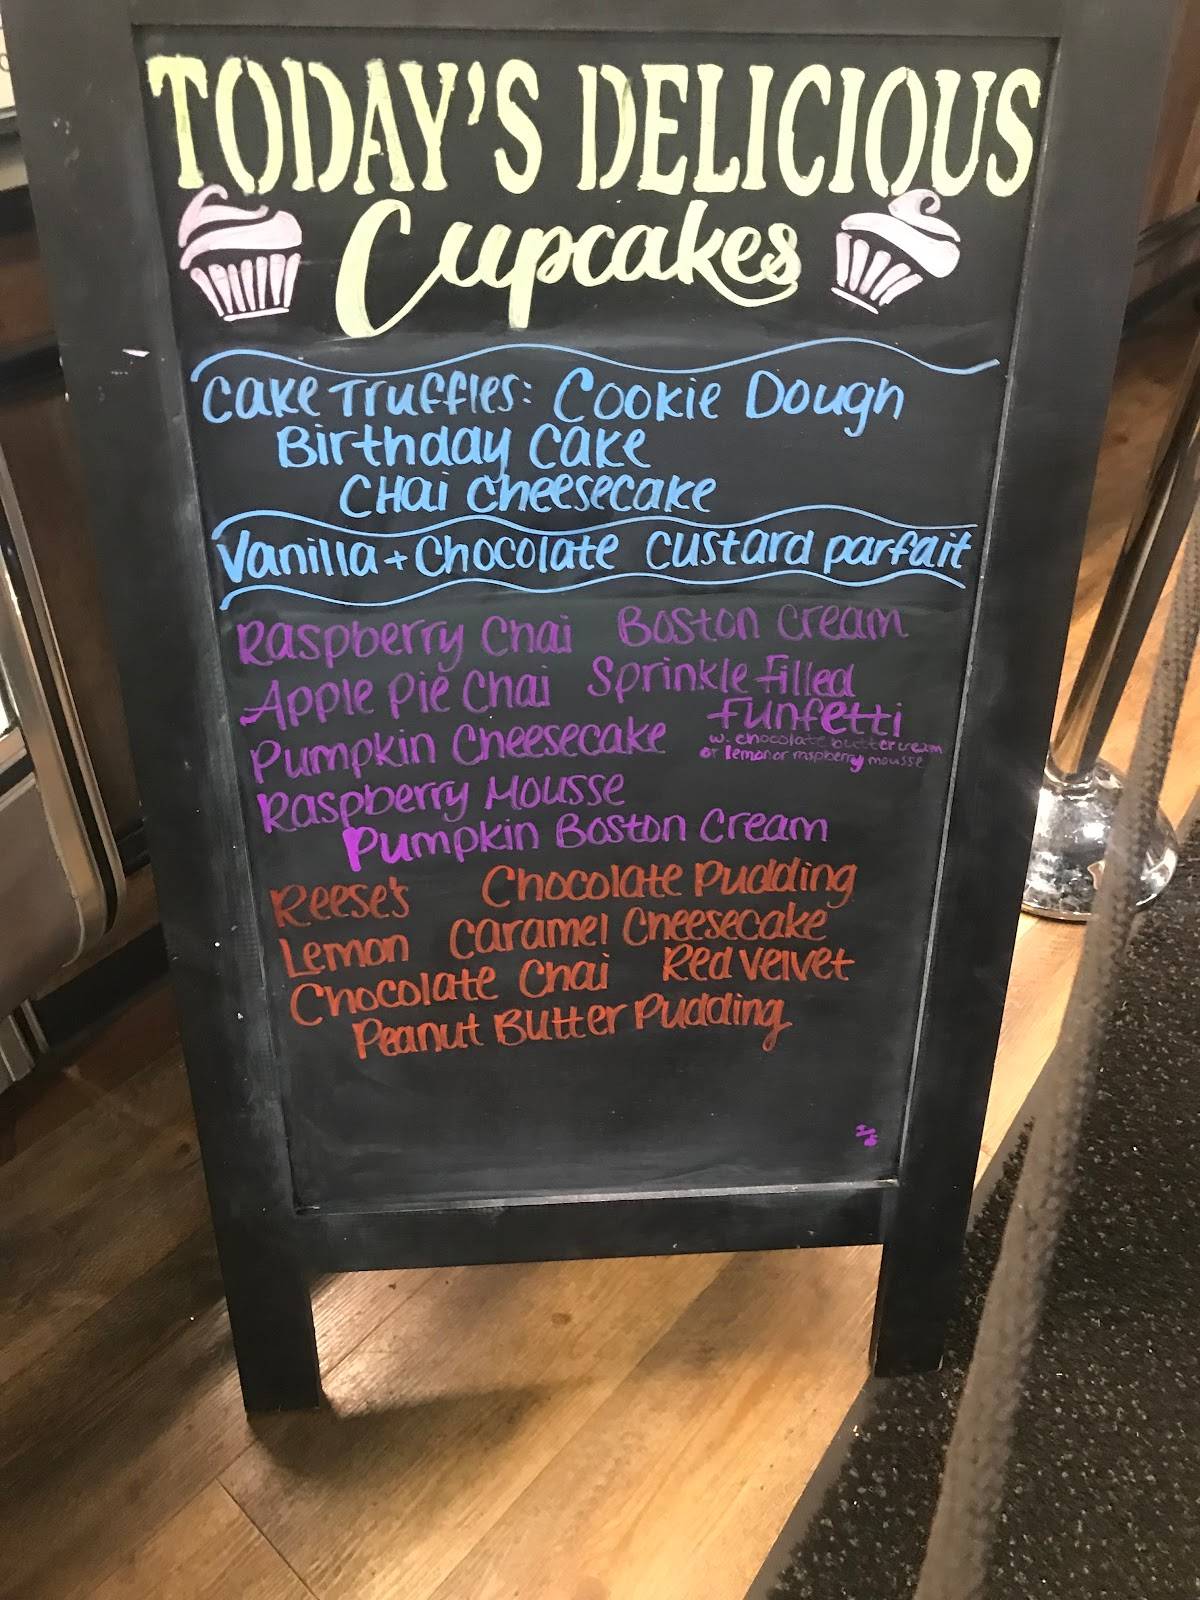 TODAY'S DELICIOUS
Cupcakes
Cake Truffles: Cookie Dough
Birthday Cake
CHai Cheesecake
Vanilla + Chocolate Custard parfait
Raspberry Chai Boston Cream
Apple Pie Chai Sprinkle Filled
Funfetti
Pumpkin Cheesecake
w. chocolate buttercream
or lemon or raspberry mousse
Raspberry Mousse
Pumpkin Boston Cream
Reese's Chocolate Pudding
Lemon Caramel Cheesecake
Chocolate Chai Red Velvet
Peanut Butter Pudding